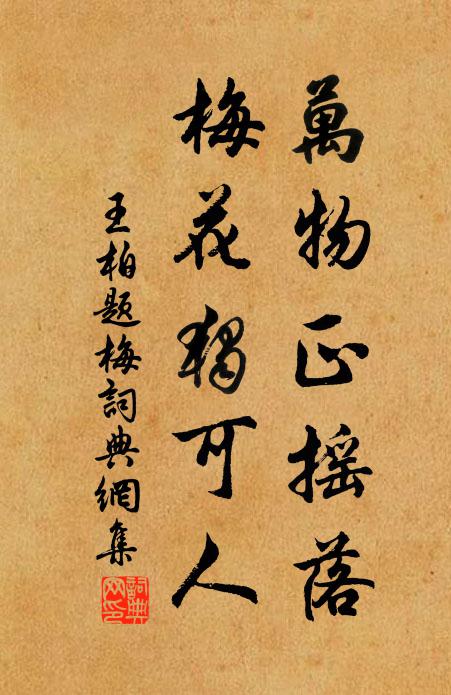 萬物正摇落
梅花獨可人
王柏題梅詞典網集
詞典网印